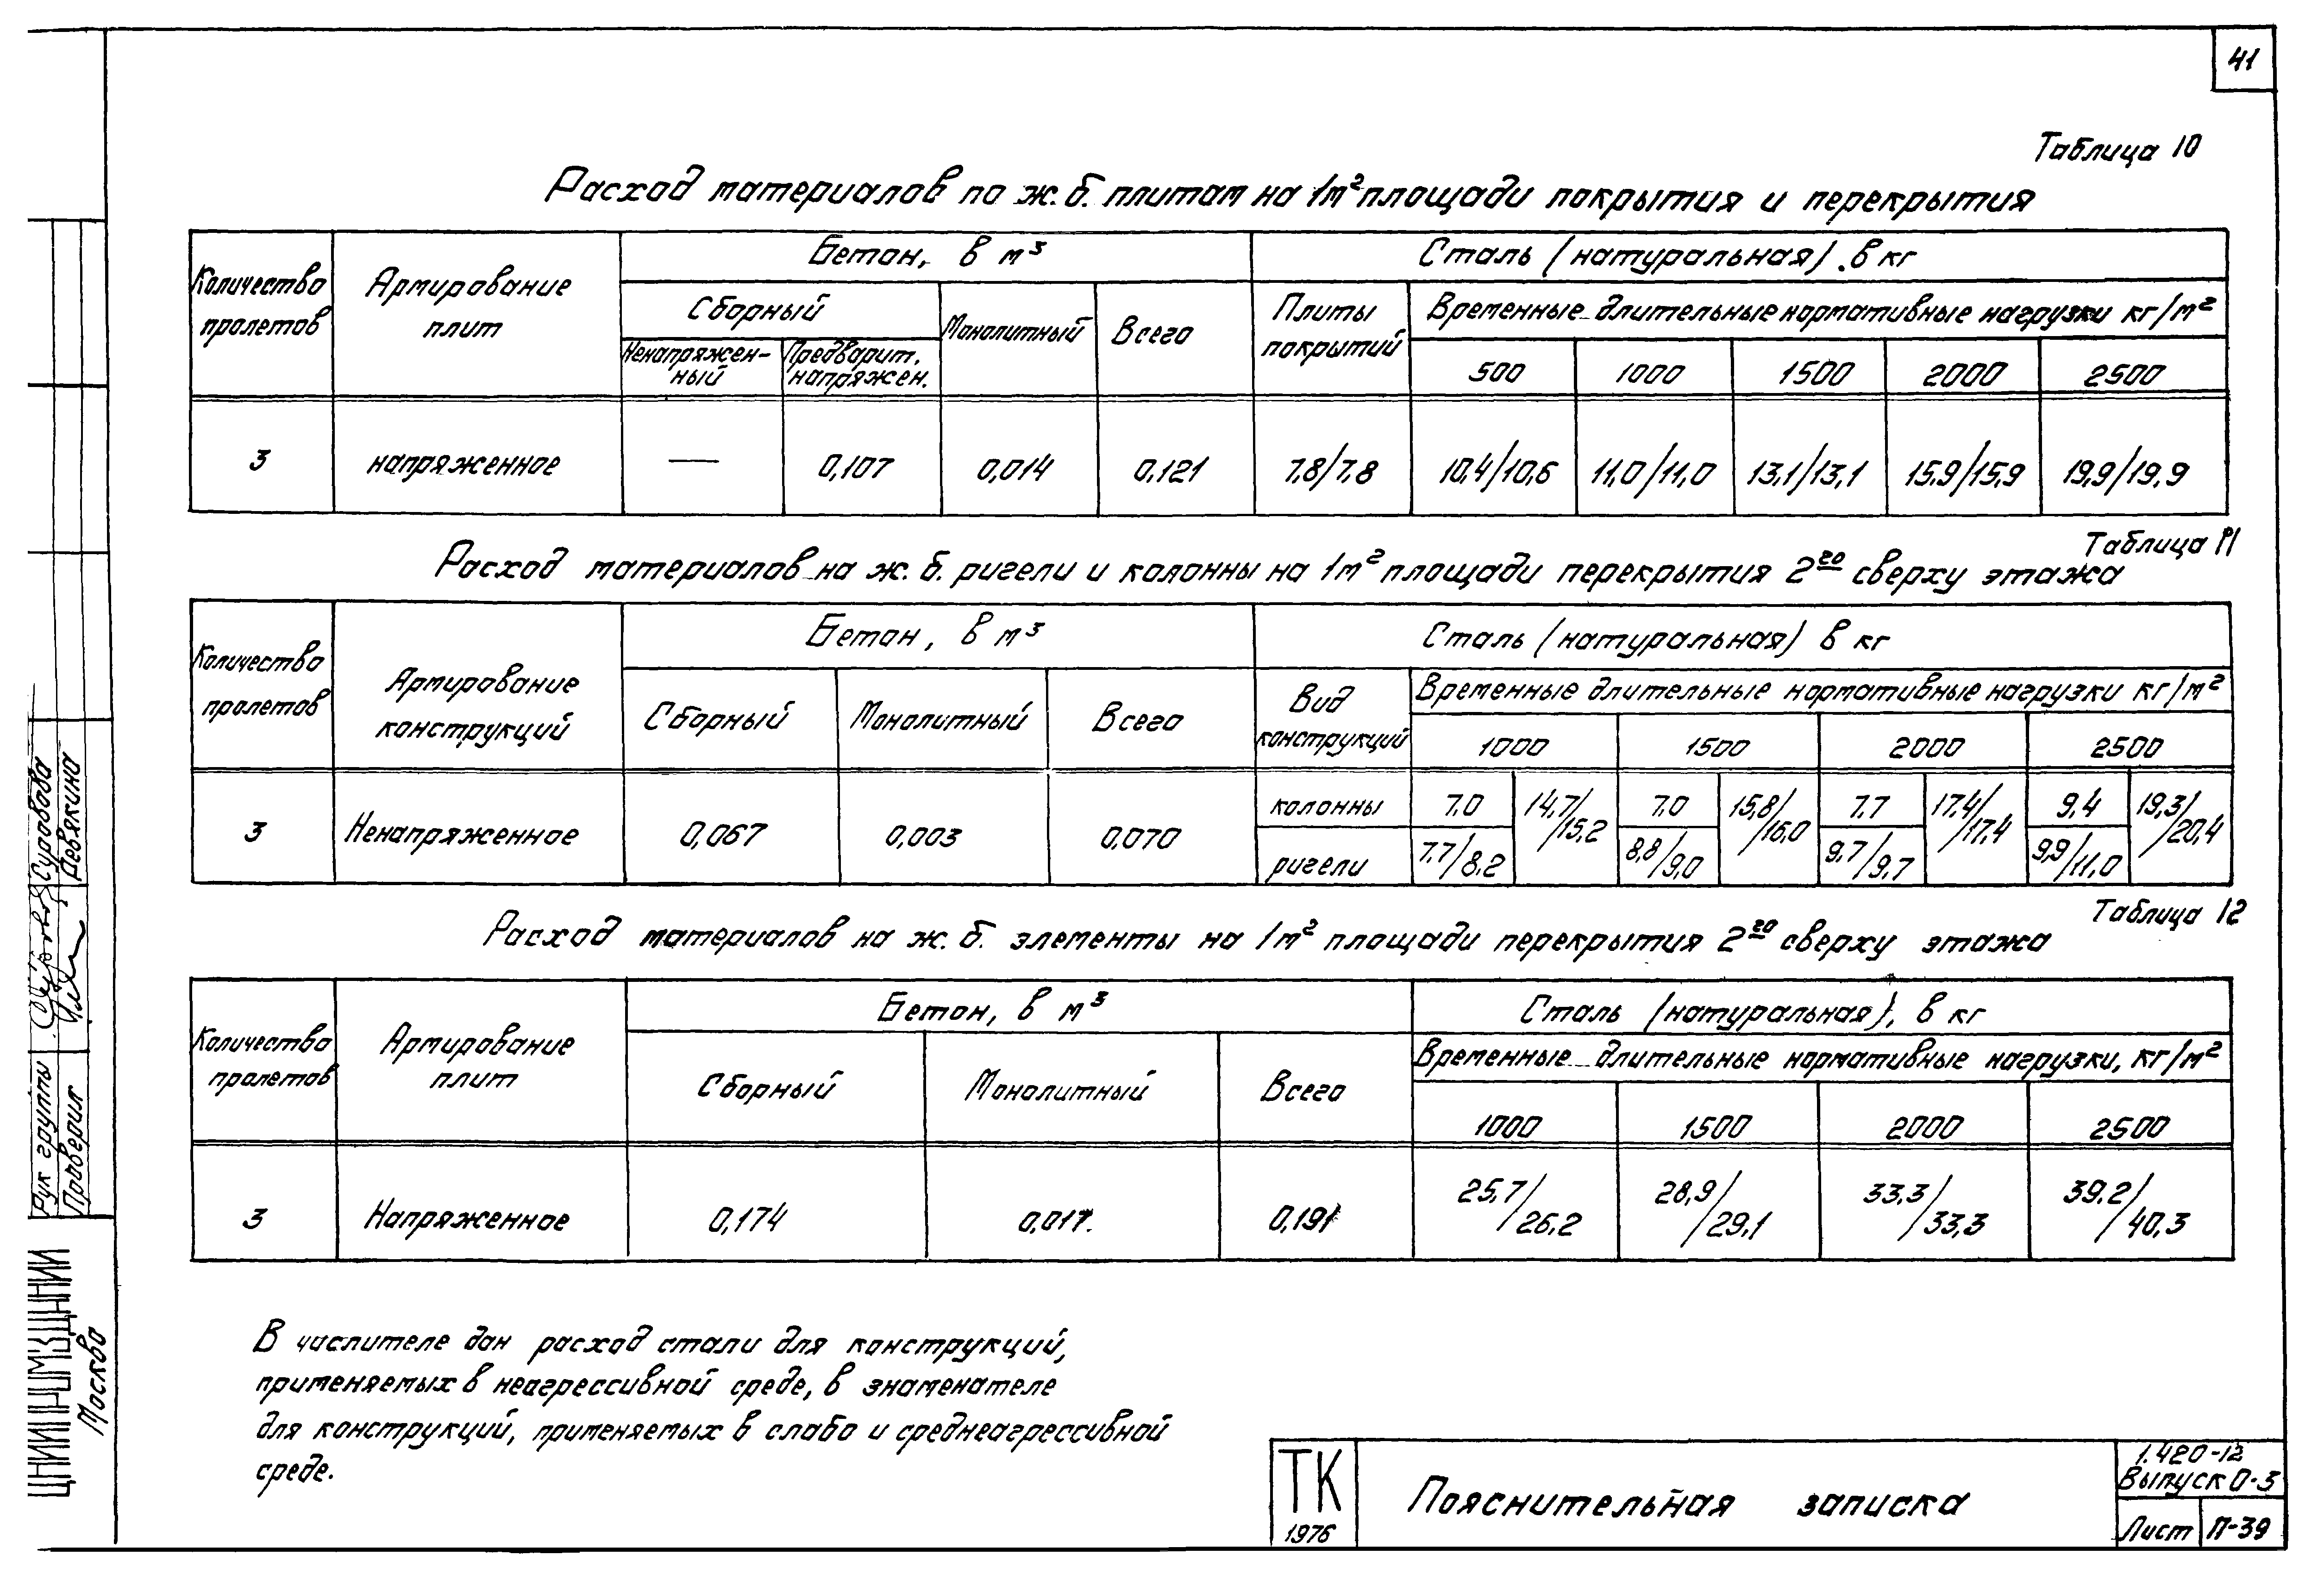 41
Таблица 10
Расход материалов по ж.б. плитам на 1м² площади покрытия и перекрытия
Количество пролетов
Армирование плит
Бетон, в м³
Сталь (натуральная), в кг
Сборный
Монолитный
Всего
Плиты покрытий
Временные длительные нормативные нагрузки кг/м²
Ненапряжен-
ный
Предварит. напряжен.
500 1000 1500 2000 2500
3 напряженное — 0,107 0,014 0,121 7,8/7,8 10,4/10,6 11,0/11,0 13,1/13,1 15,9/15,9 19,9/19,9
Таблица 11
Расход материалов на ж.б. ригели и колонны на 1м² площади перекрытия 2го сверху этажа
Количество пролетов
Армирование конструкций
Бетон, в м³
Сталь (натуральная) в кг
Сборный
Монолитный
Всего
Вид конструкций
Временные длительные нормативные нагрузки кг/м²
1000 1500 2000 2500
3 Ненапряженное 0,067 0,003 0,070
колонны 7,0 14,7/15,2 7,0 15,8/16,0 7,7 17,4/17,4 9,4 19,3/20,4
ригели 7,7/8,2 8,8/9,0 9,7/9,7 9,9/11,0
Таблица 12
Расход материалов на ж.б. элементы на 1м² площади перекрытия 2го сверху этажа
Количество пролетов
Армирование плит
Бетон, в м³
Сталь (натуральная), в кг
Сборный
Монолитный
Всего
Временные длительные нормативные нагрузки, кг/м²
1000 1500 2000 2500
3 Напряженное 0,174 0,017. 0,191 25,7/26,2 28,9/29,1 33,3/33,3 39,2/40,3
В числителе дан расход стали для конструкций,
применяемых в неагрессивной среде, в знаменателе
для конструкций, применяемых в слабо и среднеагрессивной
среде.
ТК
1976
Пояснительная записка
1.420-12
Выпуск 0-3
Лист П-39
Рук группы Суровова
Проверил Девякина
ЦНИИПРОМЗДАНИЙ
Москва